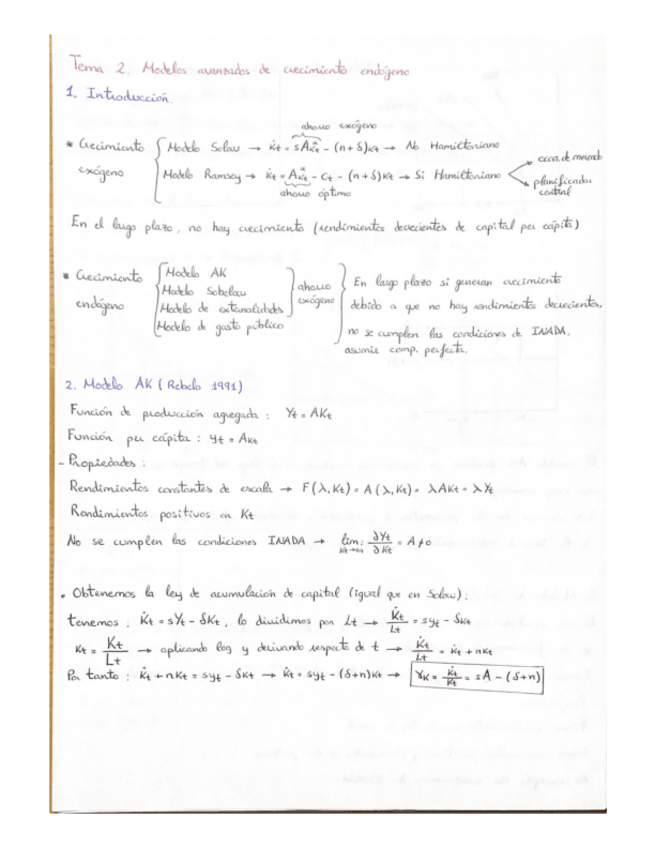 Tema 2. Modelos avanzados de crecimiento endógeno
1. Introducción.
ahorro exógeno
* Crecimiento exógeno { Modelo Solow → k̇t = sAktᵅ - (n+δ)kt → No Hamiltoniano
Modelo Ramsey → k̇t = Aktᵅ - ct - (n+δ)kt → Si Hamiltoniano < econ. de mercado
planificador central
ahorro óptimo
En el largo plazo, no hay crecimiento (rendimientos decrecientes de capital per cápita)
* Crecimiento endógeno { Modelo AK
Modelo Sobelow
Modelo de externalidades
Modelo de gasto público
} ahorro exógeno
} En largo plazo si generan crecimiento
debido a que no hay rendimientos decrecientes,
no se cumplen las condiciones de INADA,
asumir comp. perfecta.
2. Modelo AK (Rebelo 1991)
Función de producción agregada: Yt = AKt
Función per cápita: yt = Akt
- Propiedades:
Rendimientos constantes de escala → F(λ,Kt) = A(λ,Kt) = λAKt = λYt
Rendimientos positivos en Kt
No se cumplen las condiciones INADA → lim Kt→∞ ∂Yt/∂Kt = A ≠ 0
• Obtenemos la ley de acumulación de capital (igual que en Solow):
tenemos: K̇t = sYt - δKt, lo dividimos por Lt → K̇t/Lt = syt - δkt
kt = Kt/Lt → aplicando log y derivando respecto de t → K̇t/Lt = k̇t + nkt
Por tanto: k̇t + nkt = syt - δkt → k̇t = syt - (δ+n)kt → γK = k̇t/kt = sA - (δ+n)